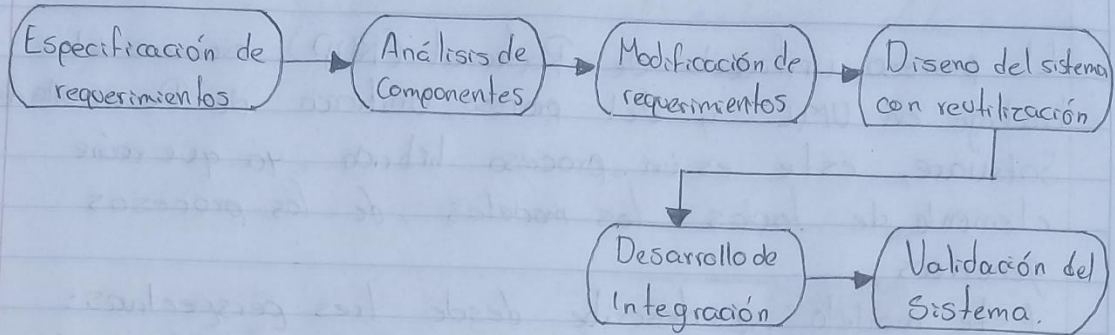 Especificación de
requerimientos
Análisis de
Componentes
Modificación de
requerimientos
Diseno del sistema
con reutilización
Desarrollo de
Integración
Validación del
Sistema.